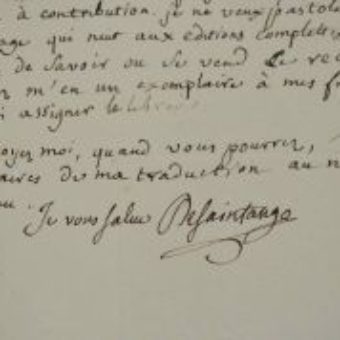 à contribution. je ne veux pas tole
age qui nuit aux editions complettes
de savoir ou se vend ce rec
m'en un exemplaire à mes fr
assigner le libraire
oyez moi, quand vous pourrez,
aires de ma traduction au n
ou.
Je vous salue DeSaintange